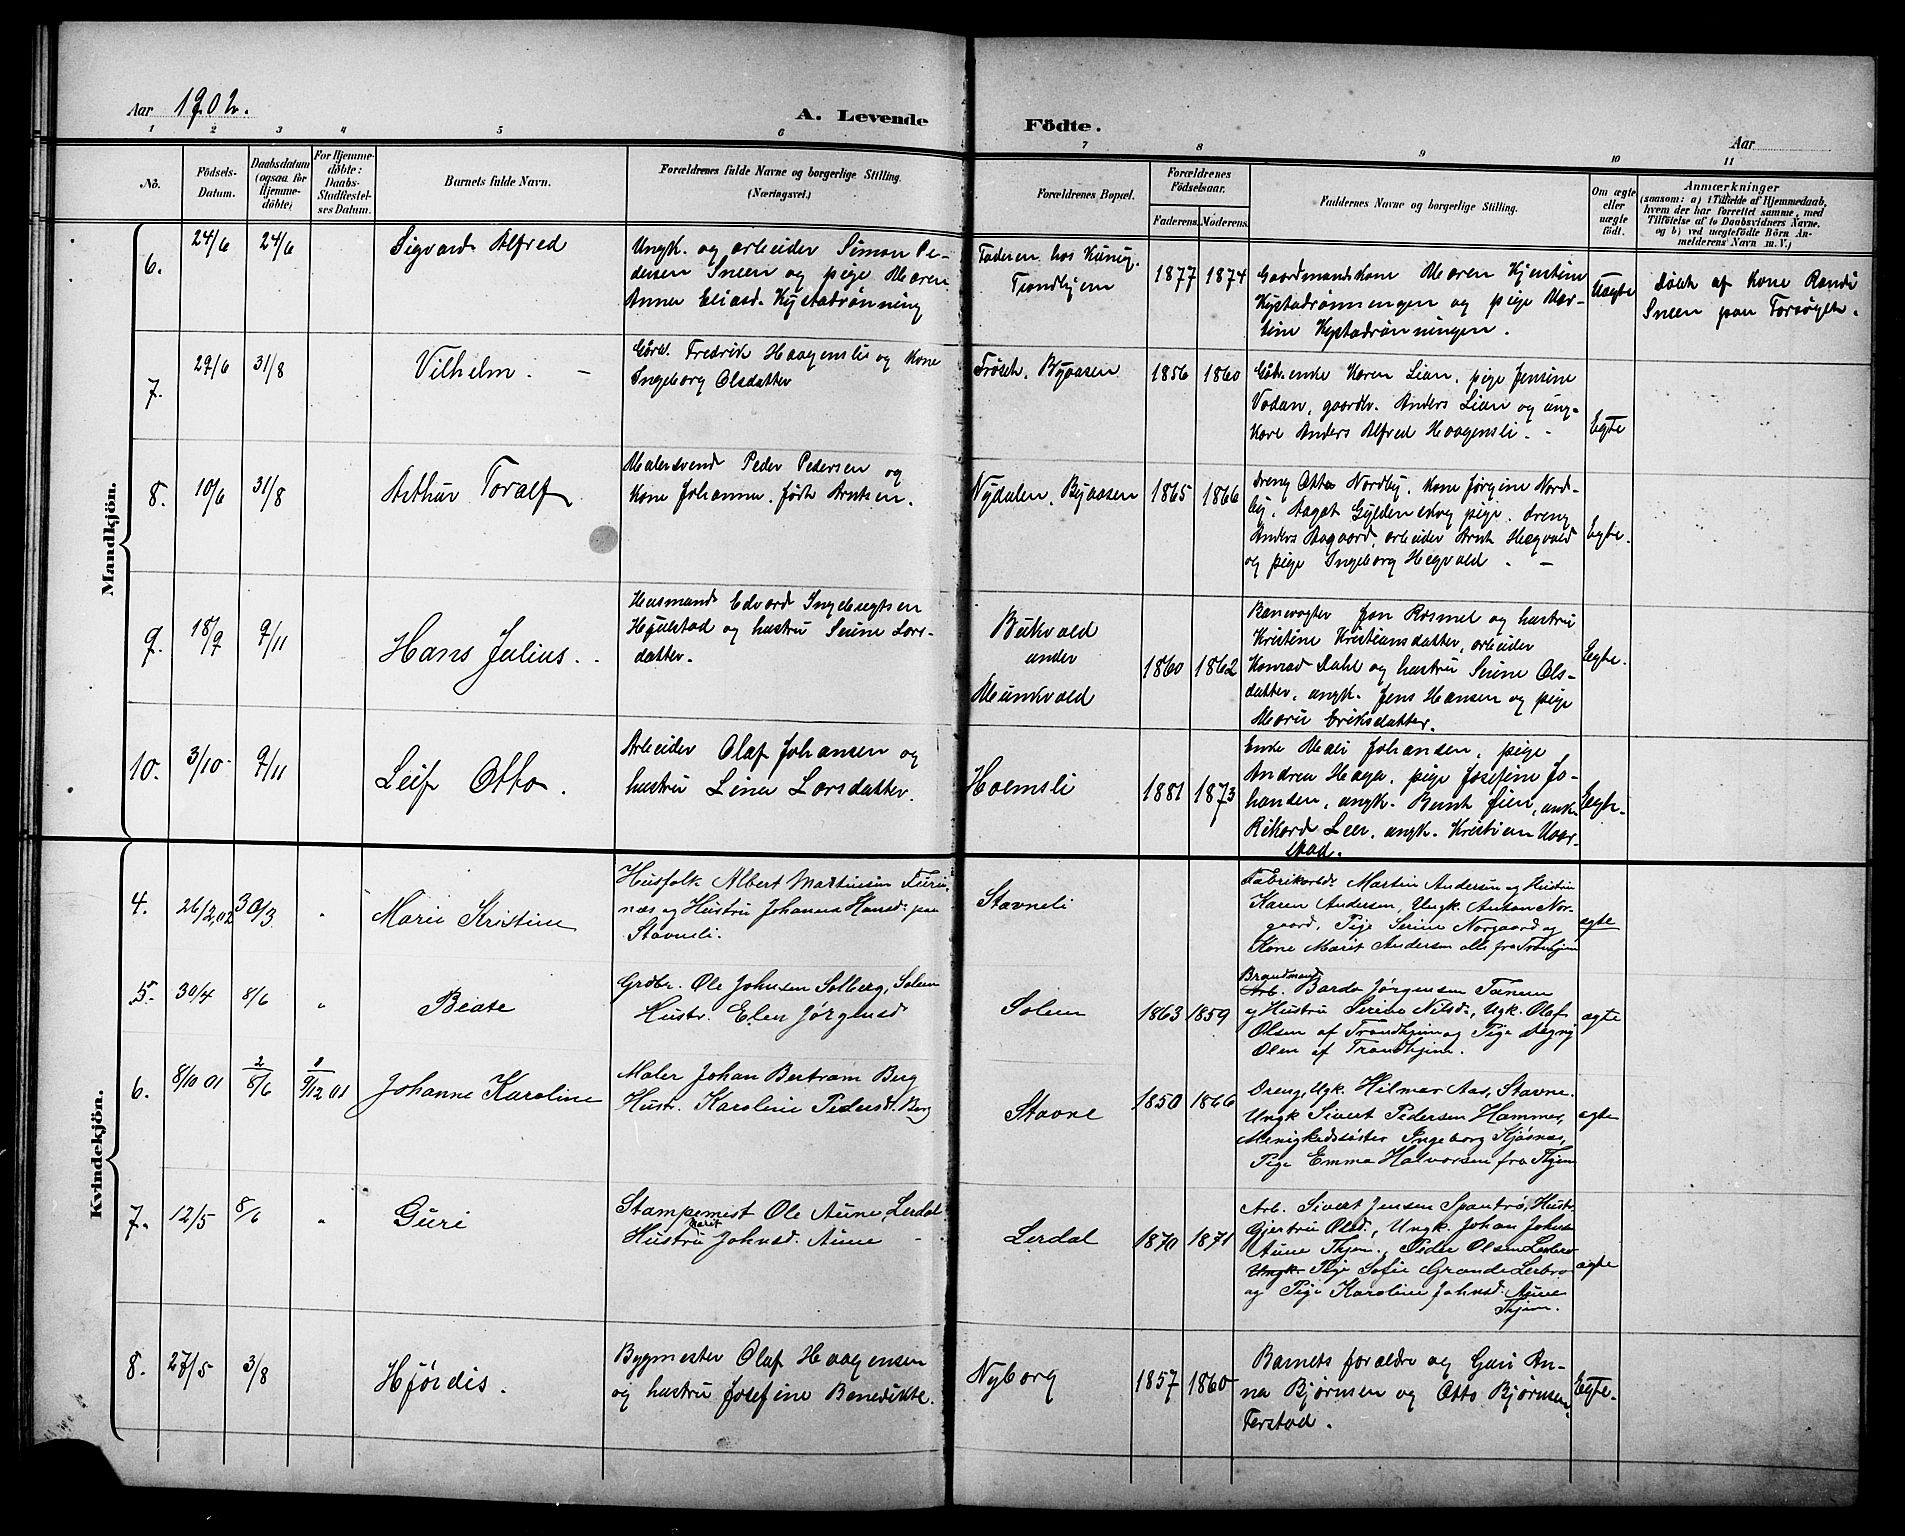 Aar 1902.
A. Levende Födte.
Aar
1 2 3 4 5 6 7 8 9 10 11
No.
Födsels-Datum.
Daabsdatum (ogsaa for Hjemmedöbte)
For Hjemmedöbte: Daabs-Stadfæstelses Datum.
Barnets fulde Navn.
Forældrenes fulde Navne og borgerlige Stilling.
(Næringsvei.)
Forældrenes Bopæl.
Forældrenes Födselsaar.
Faderens. Moderens.
Faddernes Navne og borgerlige Stilling.
Om ægte eller uægte födt.
Anmærkninger
(saasom: a) i Tilfælde af Hjemmedaab,
hvem der har forrettet samme, med
Tilföielse af to Daabsvidners Navne,
og b) ved uægtefödte Börn Anmelderens Navn m. V.)
Mandkjön.
6. 24/6 24/6
Sigvard Alfred
Ungk. og arbeider Simon Pe-
dersen Sneen og pige Maren
Anna Eliasd. Kystadrønning
Faderen hos
Trondhjem
1877 1874
Gaardmandskone Maren
Kystadrønningen og pige Mar-
tine Kystadrønningen.
Uægte
Døbt af Kone Randi
Sneen paa
7. 29/6 31/8
Vilhelm. –
Fredrik Haagensli og Kone
Ingeborg Olsdatter
Byaasen
1856 1860
enke Karen Lian, pige Jensine
Vadan, gaardbr. Anders Lian og ung-
karl Anders Alfred Haagensli. -
Egte
8. 10/6 31/8
Arthur Toralf
Malersvend Peder Pedersen og
Kone Johanna, født Arntsen.
Nydalen, Byaasen
1865 1866
Dreng Otto Nordby, Kone Jørgine Nord-
by, pige, dreng
Anders Aagaard, arbeider Arnt Hegvald
og pige Ingeborg Hegvald. –
Egte.
9. 18/9 9/11
Hans Julius. .
Husmand Edvard Ingebrigtsen
Hjulstad og hustru Serine Lars-
datter.
Bukvald
under
Munkvald
1860 1862
Banevogter Jon Rosmel og hustru
Kristine Kristiansdatter, arbeider
Konrad Dahl og hustru Serine Ols-
datter, ungk. Jens Hansen og pige
Marie Eriksdatter.
Egte.
10. 3/10 9/11
Leif Otto.
Arbeider Olaf Johansen og
hustru Lina Larsdatter.
Havnsli
1881 1873
Enke Mali Johansen, pige
Andrea Haga, pige Josefine Jo-
hansen, ungk. Bernt Øien, ungk.
Rikard Leer, ungk. Kristian
stad.
Egte.
Kvindekjön.
4. 26/2,02 30/3 "
Marie Kristine
Husfolk Albert Martinsen Furu-
næs og Hustru Johanna Hansd. paa
Stavneli.
Stavneli
Fabrikarbd. Martin Andersen og Hustru
Karen Andersen, Ungk. Anton Nor-
gaard, Pige Serine Norgaard og
Kone Marit Andersen alle fra Tronhjem
ægte
5. 30/4 8/6 "
Beate
Grdbr. Ole Johnsen Solberg, Solem
Hustr. Elen Jørgensd
Solem
1863 1859
Brandmand
Arb. Bardo Jørgensen Tanem
og Hustru Sirena Nilsd., Ugk. Olaf
Olsen af Trondhjem og Pige Dagny
Olsen af Trondhjem.
ægte
6. 8/10 01 2/8/6 0/9/12 01
Johanne Karoline
Maler Johan Bertram Berg
Hustr. Karoline Pedersd. Berg
Stavne
1850 1866
Dreng, Ugk. Hilmar Aas, Stavne.
Ungk Sivert Pedersen Hammer,
Menighedssøster Ingeborg Kjøsnæs,
Pige Emma Halvorsen fra Thjem
ægte
7. 12/5 8/6 "
Guri
Stampemest Ole Aune, Lerdal
Hustru Marit Johnsd. Aune -
Lerdal
1870 1871
Arb. Sivert Jensen Spantrø, Hustr
Gjertru Olsd., Ungk. Johan Johnsen
Aune Thjem., Peder Olsen Lerbro
Ungk. Pige Sofie Grande Lerbro
og Pige Karoline Johnsd. Aune
Thjem.
ægte
8. 27/5 3/8
Hjørdis.
Bygmester Olaf Haagensen
og hustru Josefine Benedikte.
Nyborg
1857 1860
Barnets forældre og Guri An-
na Bjørnsen og Otto Bjørnsen
Ferstad.
Egte.